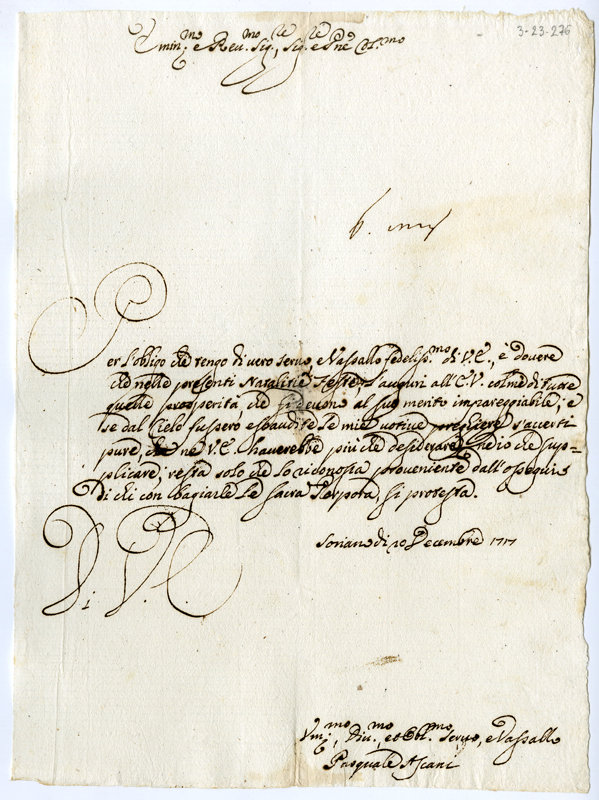 3-23-276
Emin.mo e Reu.mo Sig.re, Sig.re e Pne Col.mo
Per l'obligo che tengo di uero seruo, e Vassallo fedeliss.mo di V.E., è douere
che nelle presenti Natalitie Feste, l'auguri all'E.V. colme di tutte
quelle prosperità che si deuono al suo merito impareggiabile; e
se dal Cielo fussero esaudite le mie uotiue preghiere s'auerti-
pure, che ne V.E. hauerebbe più che desiderare, ned io che sup=
plicare; resta solo che lo riconosca proueniente dall'ossequio
di chi con bagiarle la sacra Porpora, si protesta.
Di V.E.
Soriano di 20 Decembre 1717
Vm.mo, Diu.mo, et Obl.mo seruo, e Vassallo
Pasquale Ascani